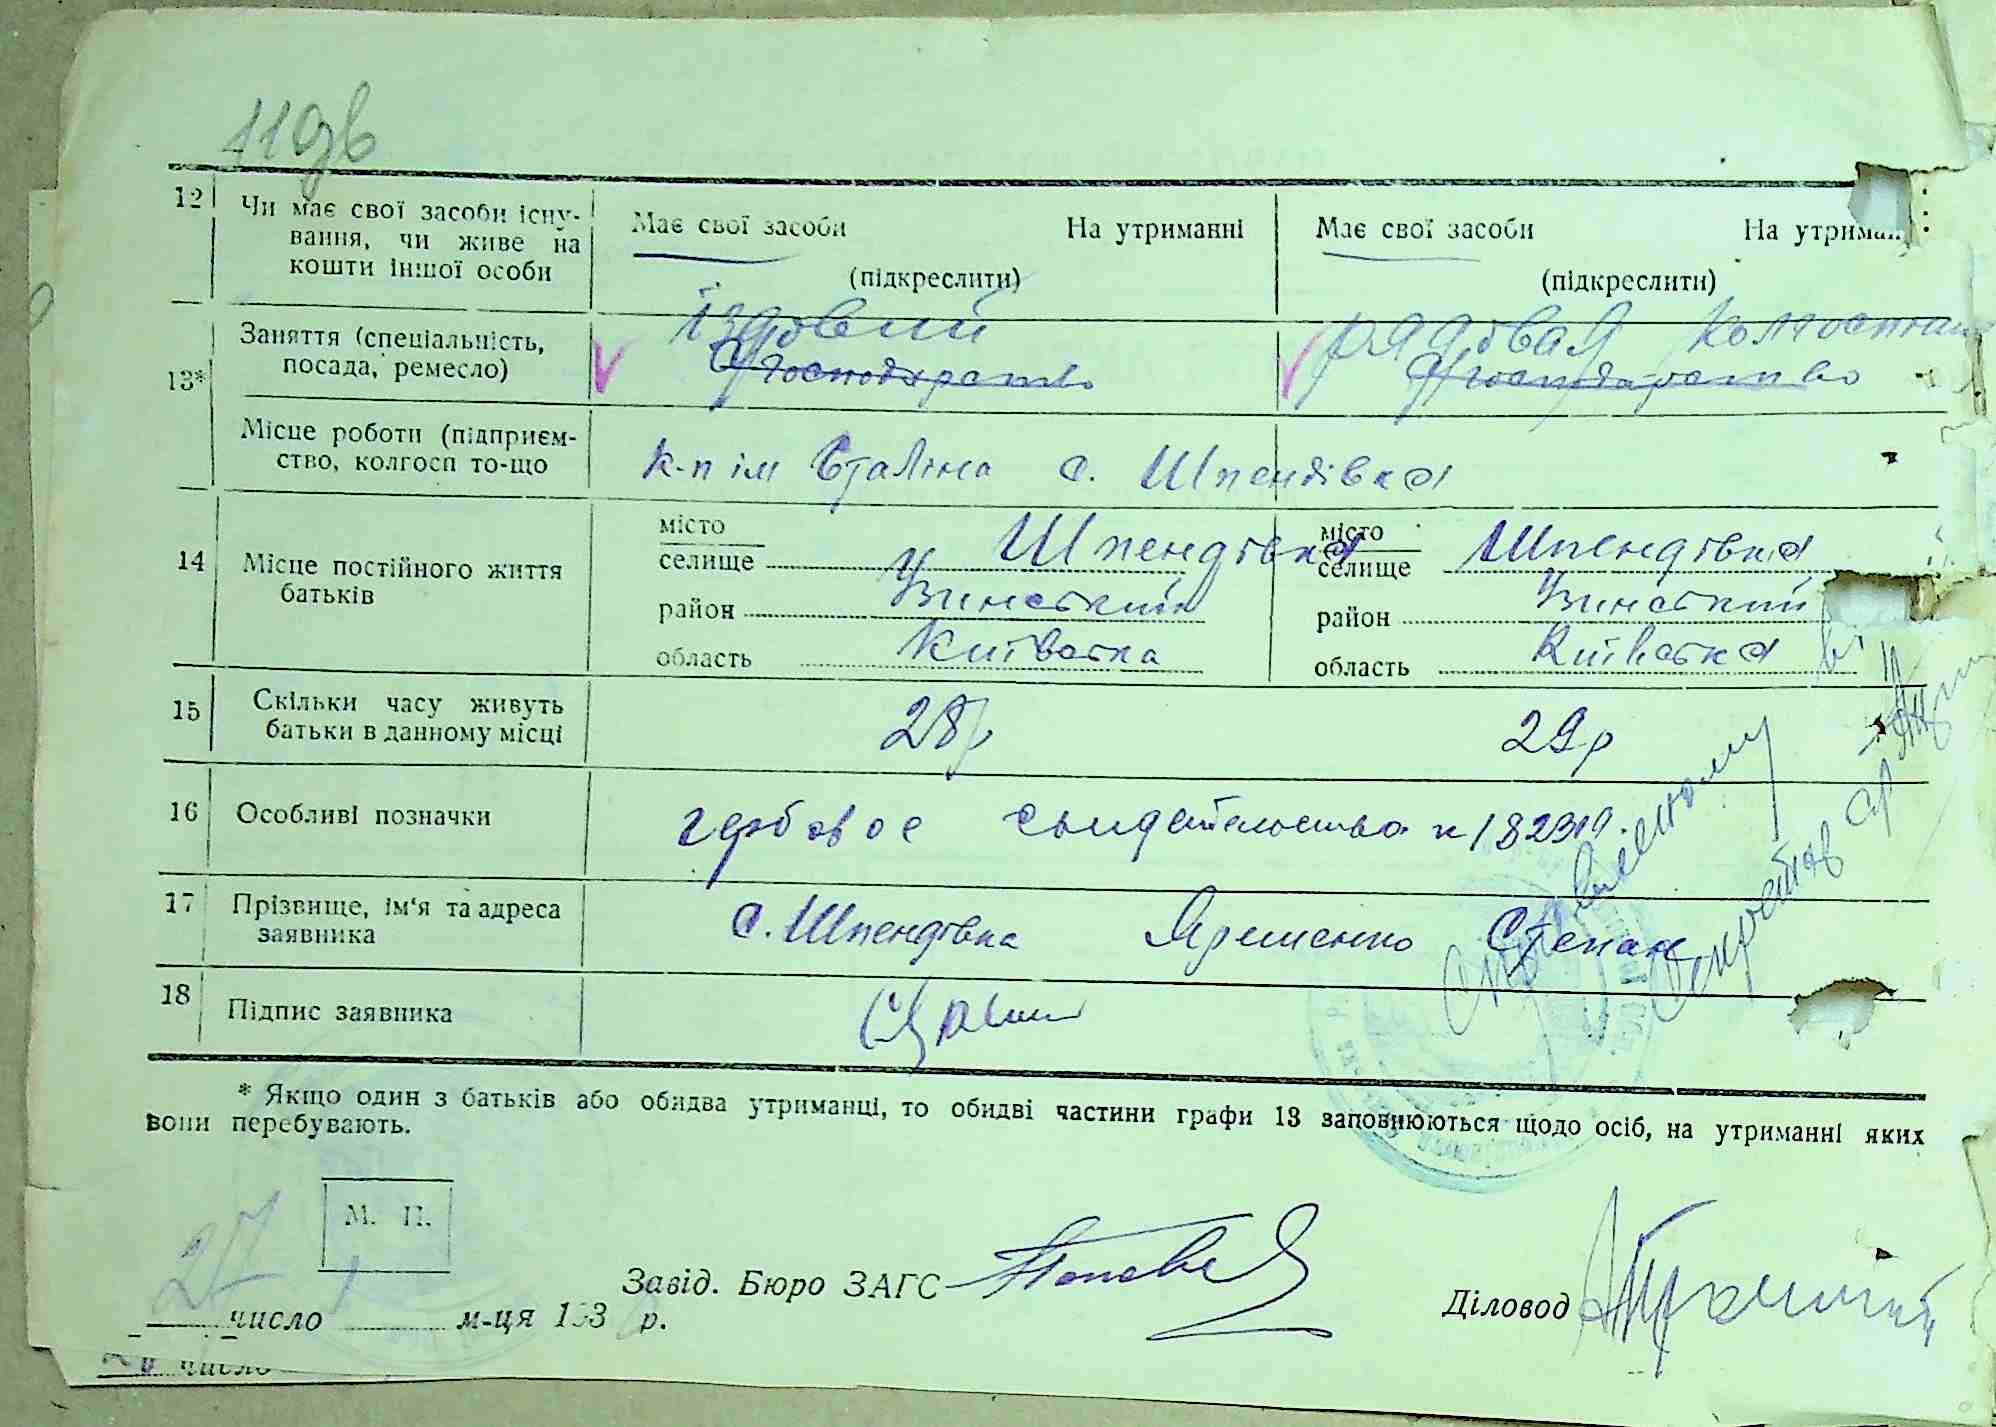 119зв
12 Чи має свої засоби існу- Має свої засоби На утриманні Має свої засоби На утриман
вання, чи живе на
кошти іншої особи (підкреслити) (підкреслити)
їздовий рядовая колгоспниц
Заняття (спеціальність,
посада, ремесло) С/господарство С/господарство
13*
Місце роботи (підприєм-
ство, колгосп то-що к-п ім Сталіна с. Шпендівка
14 Місце постійного життя
батьків
місто
селище Шпендівка
район Узинський
область Київська
місто
селище Шпендівка
район Узинський
область Київська
15 Скільки часу живуть
батьки в данному місці 28р 29р
16 Особливі позначки гербовое свидетельство н 182319.
17 Прізвище, ім'я та адреса
заявника с. Шпендівка Яременко Степан
18 Підпис заявника
* Якщо один з батьків або обидва утриманці, то обидві частини графи 13 заповнюються щодо осіб, на утриманні яких
вони перебувають.
М. П.
27 число м-ця 193 р.
Завід. Бюро ЗАГС
Діловод
число